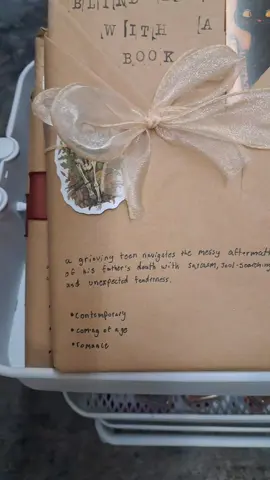 WITH A
BOOK
a grieving teen navigates the messy aftermath
of his father's death with sarcasm, soul-searching
and unexpected tenderness.
*contemporary
*coming of age
*romance